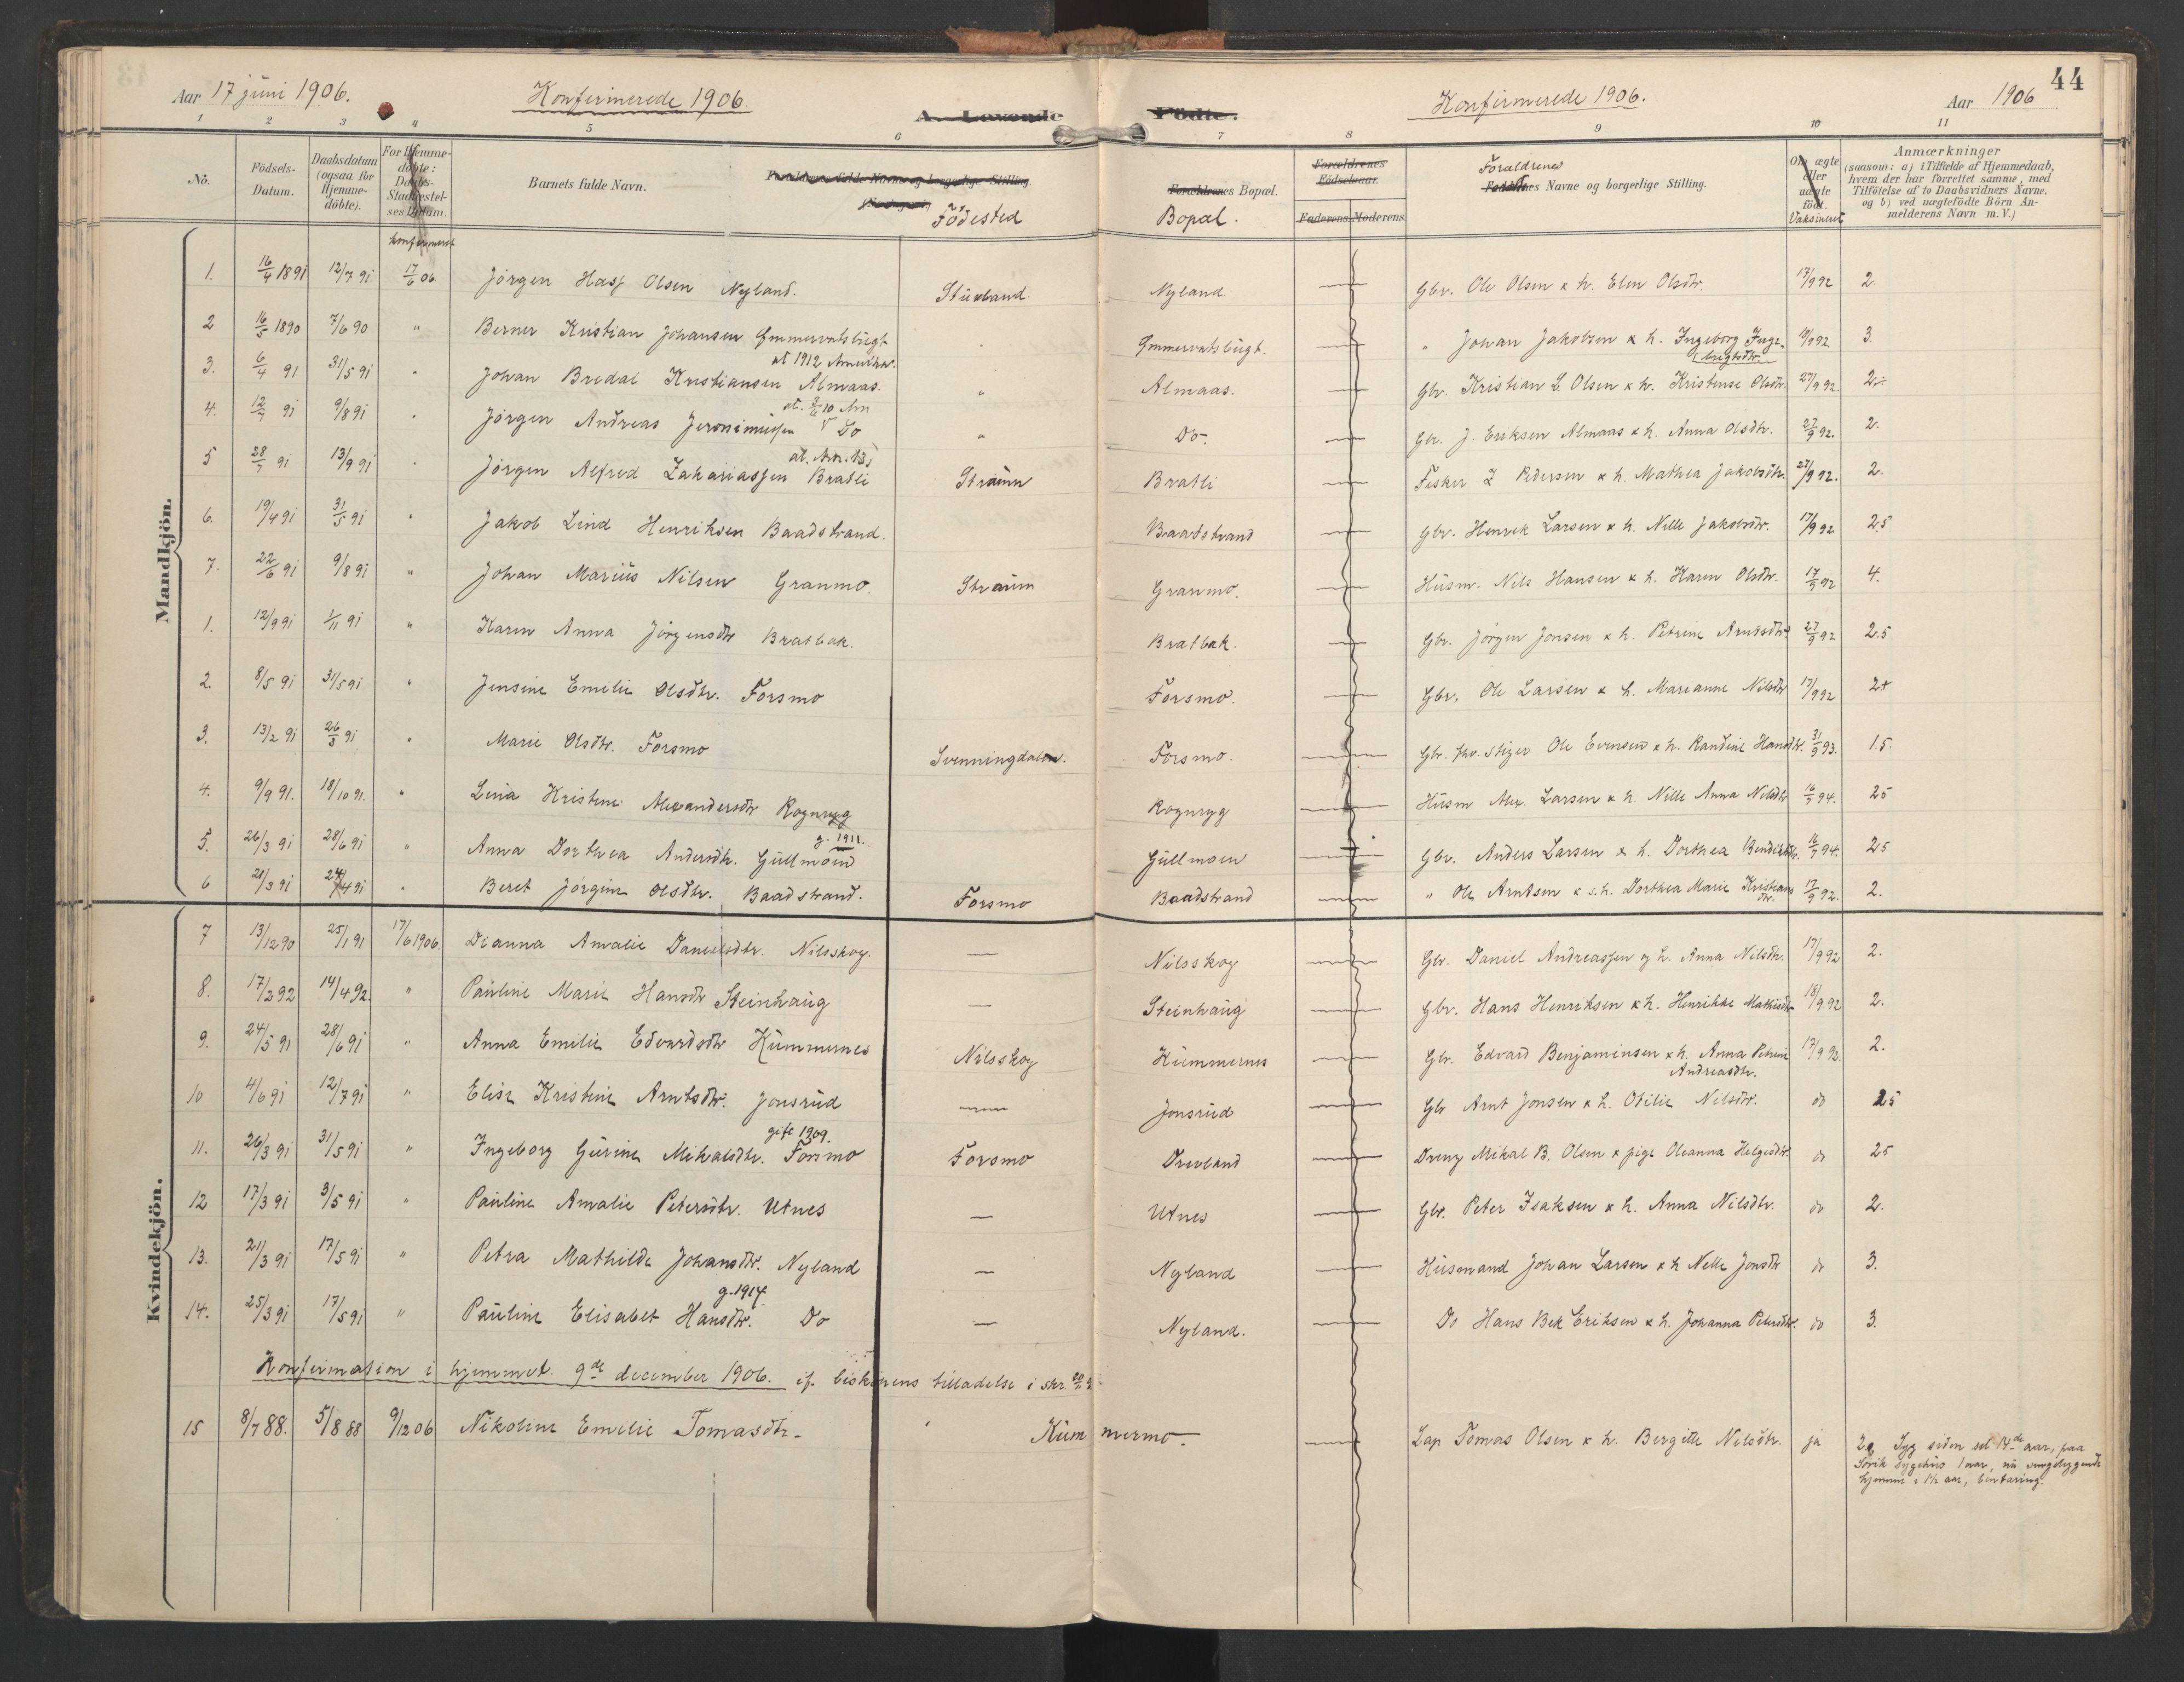 44
Aar 17 juni 1906. Konfirmerede 1906. A. Levende Födte. Konfirmerede 1906. Aar 1906
1 2 3 4 5 6 7 8 9 10 11
Nô. Födsels-Datum. Daabsdatum (ogsaa for Hjemme-döbte). For Hjemme-döbte: Daabs-Stadfæstel-ses Datum. Barnets fulde Navn. Födested Forældrenes Bopæl. Bopæl. Forældrenes Födselsaar. Faderens Moderens Foraldrenes Navne og borgerlige Stilling. Om ægte eller uægte født. Vaksineret Anmærkninger (saasom: a) i Tilfælde af Hjemmedaab, hvem der har forrettet samme, med Tilföielse af to Daabsvidners Navne. og b) ved uægtefödte Börn Anmelderens Navn m. V.)
konfirmeret
Mandkjön.
1. 16/4 1891 12/7 91 17/6 06 Jørgen Hasf Olsen Nyland. Nyland Gbr. Ole Olsen & h. Elen Olsdtr. 17/9 92 2
2 16/5 1890 7/6 90 " Berner Kristian Johansen Gmmervatsbugt Gmmervatsbugt. " Johan Jakobsen & h. Ingeborg Inge-brigtsdtr. 3.
at 1912 Amerika.
3. 6/4 91 31/5 91 " Johan Bredal Kristiansen Almaas. " Almaas. Gbr. Kristian L. Olsen & h. Kristense Olsdtr. 27/9 92. 2
4. 12/7 91 9/8 91 " Jørgen Andreas Jeronimusen Do " Do. Gbr. J. Eriksen Almaas & h. Anna Olsdtr. 27/9 92. 2.
5 28/7 91 13/9 91 " Jørgen Alfred Zakariassen Bratli Straum Bratli Fisker Z Pedersen & h. Mathea Jakobsdtr. 27/9 92. 2.
6. 19/4 91 31/5 91 " Jakob Lind Henriksen Baadstrand. Baadstrand Gbr. Henrik Larsen & h. Nelle Jakobsdtr. 17/9 92 2.5
7. 22/6 91 9/8 91 " Johan Marius Nilsen Granmo. Straum Granmo. Husm. Nils Hansen & h. Karen Olsdtr. 17/9 92 4.
1. 12/9 91 1/11 91 " Karen Anna Jørgensdtr Bratbak. Bratbak. Gbr. Jørgen Jonsen & h. Petrine Arntsdtr 27/9 92 2.5
2. 8/5 91 31/5 91 " Jensine Emilie Olsdtr. Forsmo Forsmo. Gbr. Ole Larsen & h. Marianne Nilsdtr 17/9 92 2+
3. 13/2 91 26/3 91 " Marie Olsdtr. Forsmo Svenningdalen. Forsmo. Gbr. fhv. stiger Ole Evensen & h. Randine Hansdtr. 31/9 93. 1.5.
4. 9/9 91. 18/10 91. " Lina Kristine Alexandersdtr Rognryg Rognryg Husm Alex. Larsen & h. Nille Anna Nilsdtr 16/7 94. 25
g. 1911.
5. 26/3 91 28/6 91 " Anna Dorthea Andersdtr. Gullmoen Gullmoen Gbr. Anders Larsen & h. Dorthea 16/7 94. 25
6 21/3 91 24/4 91 " Beret Jørgine Olsdtr. Baadstrand. Forsmo Baadstrand " Ole Arntsen & s.h. Dorthea Marie Kristians dtr. 17/9 92. 2.
Kvindekjön.
7 13/12 90 25/1 91 17/6 1906. Dianna Amalie Danielsdtr. Nilsskog. — Nilsskog Gbr. Daniel Andreassen og h. Anna Nilsdtr. 17/9 92 2.
8. 17/2 92 14/4 92. " Pauline Marie Hansdtr Steinhaug — Steinhaug Gbr. Hans Henriksen & h. Henrikke Mathisdtr 18/9 92 2.
9. 24/5 91 28/6 91 " Anna Emilie Edvardsdtr Kummernes Nilsskog Kummernes Gbr. Edvard Benjaminsen & h. Anna Petrine Andreasdtr. 17/9 92. 2.
10 4/6 91 12/7 91 " Elise Kristine Arntsdtr. Jonsrud — Jonsrud Gbr Arnt Jonsen & h. Otilie Nilsdtr. do 25
gift 1909.
11. 26/3 91 31/5 91 " Ingeborg Gurine Mikalsdtr. Forsmo Forsmo Drevland Dreng Mikal B. Olsen & pige Oleanna Helgesdtr. do 25
12 17/3 91 3/5 91 " Pauline Amalie Petersdtr. Utnes — Utnes Gbr. Peter Isaksen & h. Anna Nilsdtr. do 2.
13. 21/3 91 17/5 91 " Petra Mathilde Johansdtr. Nyland — Nyland Husmand Johan Larsen & h Nelle Jonsdtr do 3.
g. 1914.
14. 25/3 91 17/5 91 " Pauline Elisabet Hansdtr. Do — Nyland. Do Hans Bek Eriksen & h. Johanna Petersdtr. do 3.
Konfirmasion i hjemmet. 9de december 1906. if. biskopens tilladelse i skr.
15 8/7 88. 5/8 88 9/12 06 Nikoline Emilie Tomasdtr. Kummermo. Lap Tomas Olsen & h. Bergitte Nilsdtr. ja 2. Syg siden sit 14de aar, paa
sygehus 1 aar, nu sengeliggende
hjemme i 1½ aar,